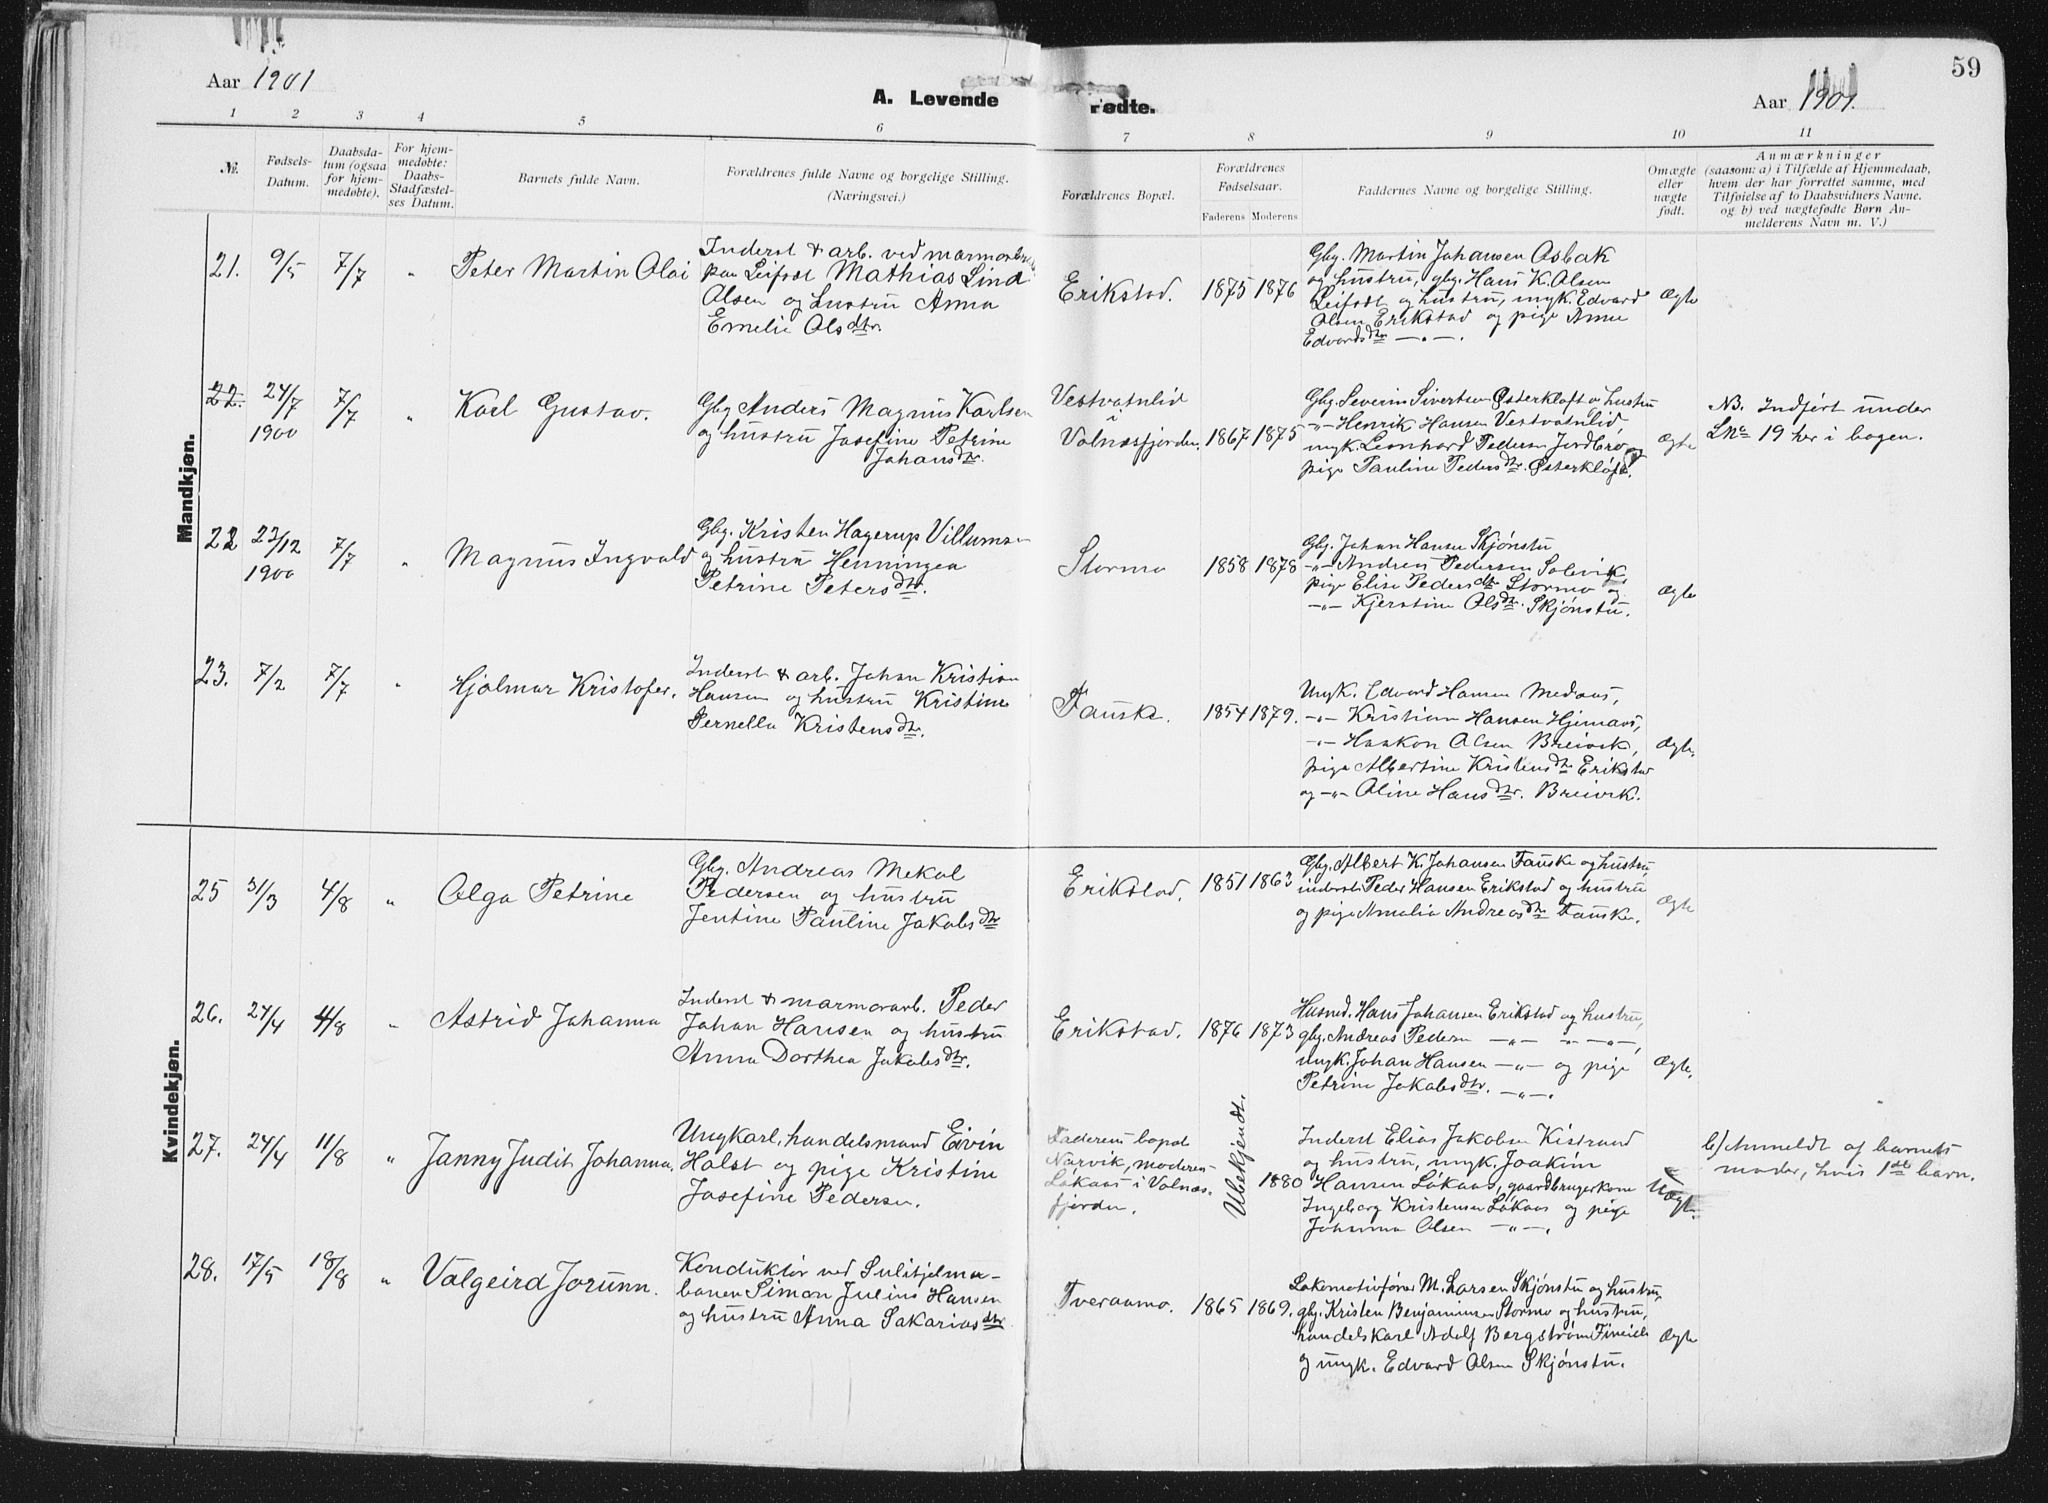 59
Aar 1901
A. Levende Fødte.
Aar 1901.
1 2 3 4 5 6 7 8 9 10 11
№.
Fødsels-
Datum.
Daabsda-
tum (ogsaa
for hjem-
medøbte).
For hjem-
medøbte:
Daabs-
Stadfæstel-
ses Datum.
Barnets fulde Navn.
Forældrenes fulde Navne og borgelige Stilling.
(Næringsvei.)
Forældrenes Bopæl.
Forældrenes
Fødselsaar.
Faderens Moderens
Faddernes Navne og borgelige Stilling.
Omægte
eller
uægte
født.
Anmærkninger
(saasom: a) i Tilfælde af Hjemmedaab,
hvem der har forrettet samme, med
Tilføielse af to Daabsvidners Navne,
og b) ved uægtefødte Børn An-
melderens Navn m. V.)
Mandkjøn.
21. 9/5 7/7 " Peter Martin Olai
Inderst & arb. ved marmorbr
paa Leifset Mathias Lind
Olsen og hustru Anna
Emelie Olsdtr.
Erikstad. 1875 1876
Gbg. Martin Johansen Osbak
og hustru, gbg. Hans K. Olsen
Leifset og hustru, ungk. Edvard
Olsen Erikstad og pige Anne
Edvardsdtr —"—.
Ægte
22. 24/7 1900 7/7 " Karl Gustav.
Gbg Anders Magnus Karlsen
og hustru Josefine Petrine
Johansdtr.
Vestvatnlid
i
Valnæsfjorden. 1867 1875
Gbg. Severin Sivertsen Østerkløft o hustru
—"— Henrik Hansen Vestvatnlid,
ungk. Leonhard Pedersen Jordbro og
pige Pauline Pedersdtr. Østerkløft.
Ægte
NB. Indført under
L№ 19 her i bogen.
22 23/12 1900 7/7 " Magnus Ingvald
Gbg. Kristen Hagerup Villumsen
og hustru Henningea
Petrine Petersdtr.
Stormo 1858 1878
Gbg. Johan Hansen Skjønstu
—"— Andreas Pedersen Solvik,
pige Elise Pedersdtr Stormo og
—"— Kjerstine Olsdtr. Skjønstu.
Ægte
23. 7/2 7/7 " Hjalmar Kristofer.
Inderst & arb. Johan Kristian
Hansen og hustru Kristine
Pernella Kristensdtr.
Fauske. 1854 1879.
Ungk. Edvard Hansen Medaas,
—"— Kristian Hansen Hjemaas,
—"— Haakon Olsen Breivik,
pige Albertine Kristensdtr Erikstad
og —"— Oline Hansdtr. Breivik.
Ægte.
Kvindekjøn.
25 31/3 4/8 " Olga Petrine
Gbg. Andreas Mekal
Pedersen og hustru
Jentine Pauline Jakobsdtr
Erikstad. 1851 1863
Gbg. Albert K. Johansen Fauske og hustru,
inderst Peder Hansen Erikstad og hustru
og pige Amalia Andreasdtr Fauske.
Ægte
26. 24/4 4/8 " Astrid Johanna
Inderst & marmorarb. Peder
Johan Hansen og hustru
Anna Dorthea Jakobsdtr.
Erikstad. 1876 1873
Husmd. Hans Johansen Erikstad og hustru,
gbg. Andreas Pedersen —"— "—"—,
ungk. Johan Hansen —"— og pige
Petrine Jakobsdtr. —"—.
Ægte.
27. 24/4 11/8 " Janny Judit Johanna,
Ungkarl, handelsmand Eivin
Holst og pige Kristine
Josefine Pedersen.
Faderens bopæl
Narvik, moderens
Løkaas i Valnæs-
fjorden.
Ubekjendt. 1880
Inderst Elias Jakobsen Kistrand
og hustru, ungk. Joakim
Hansen Løkaas, gaardbrugerkone
Ingeborg Kristensen Løkaas og pige
Johanna Olsen —"—.
Uægte.
b) Anmeldt af barnets
moder, hvis 1ste barn.
28. 17/5 18/8 " Valgeird Jorunn.
Konduktør ved Sulitjelma-
banen Simon Julius Hansen
og hustru Anna Sakariasdtr
Tveraamo. 1865 1869.
Lokomotivfører M. Larsen Skjønstu og hustru,
gbg. Kristen Benjaminsen Stormo og hustru,
handelskarl Adolf Bergstrøm Fineide
og ungk. Edvard Olsen Skjønstu.
Ægte